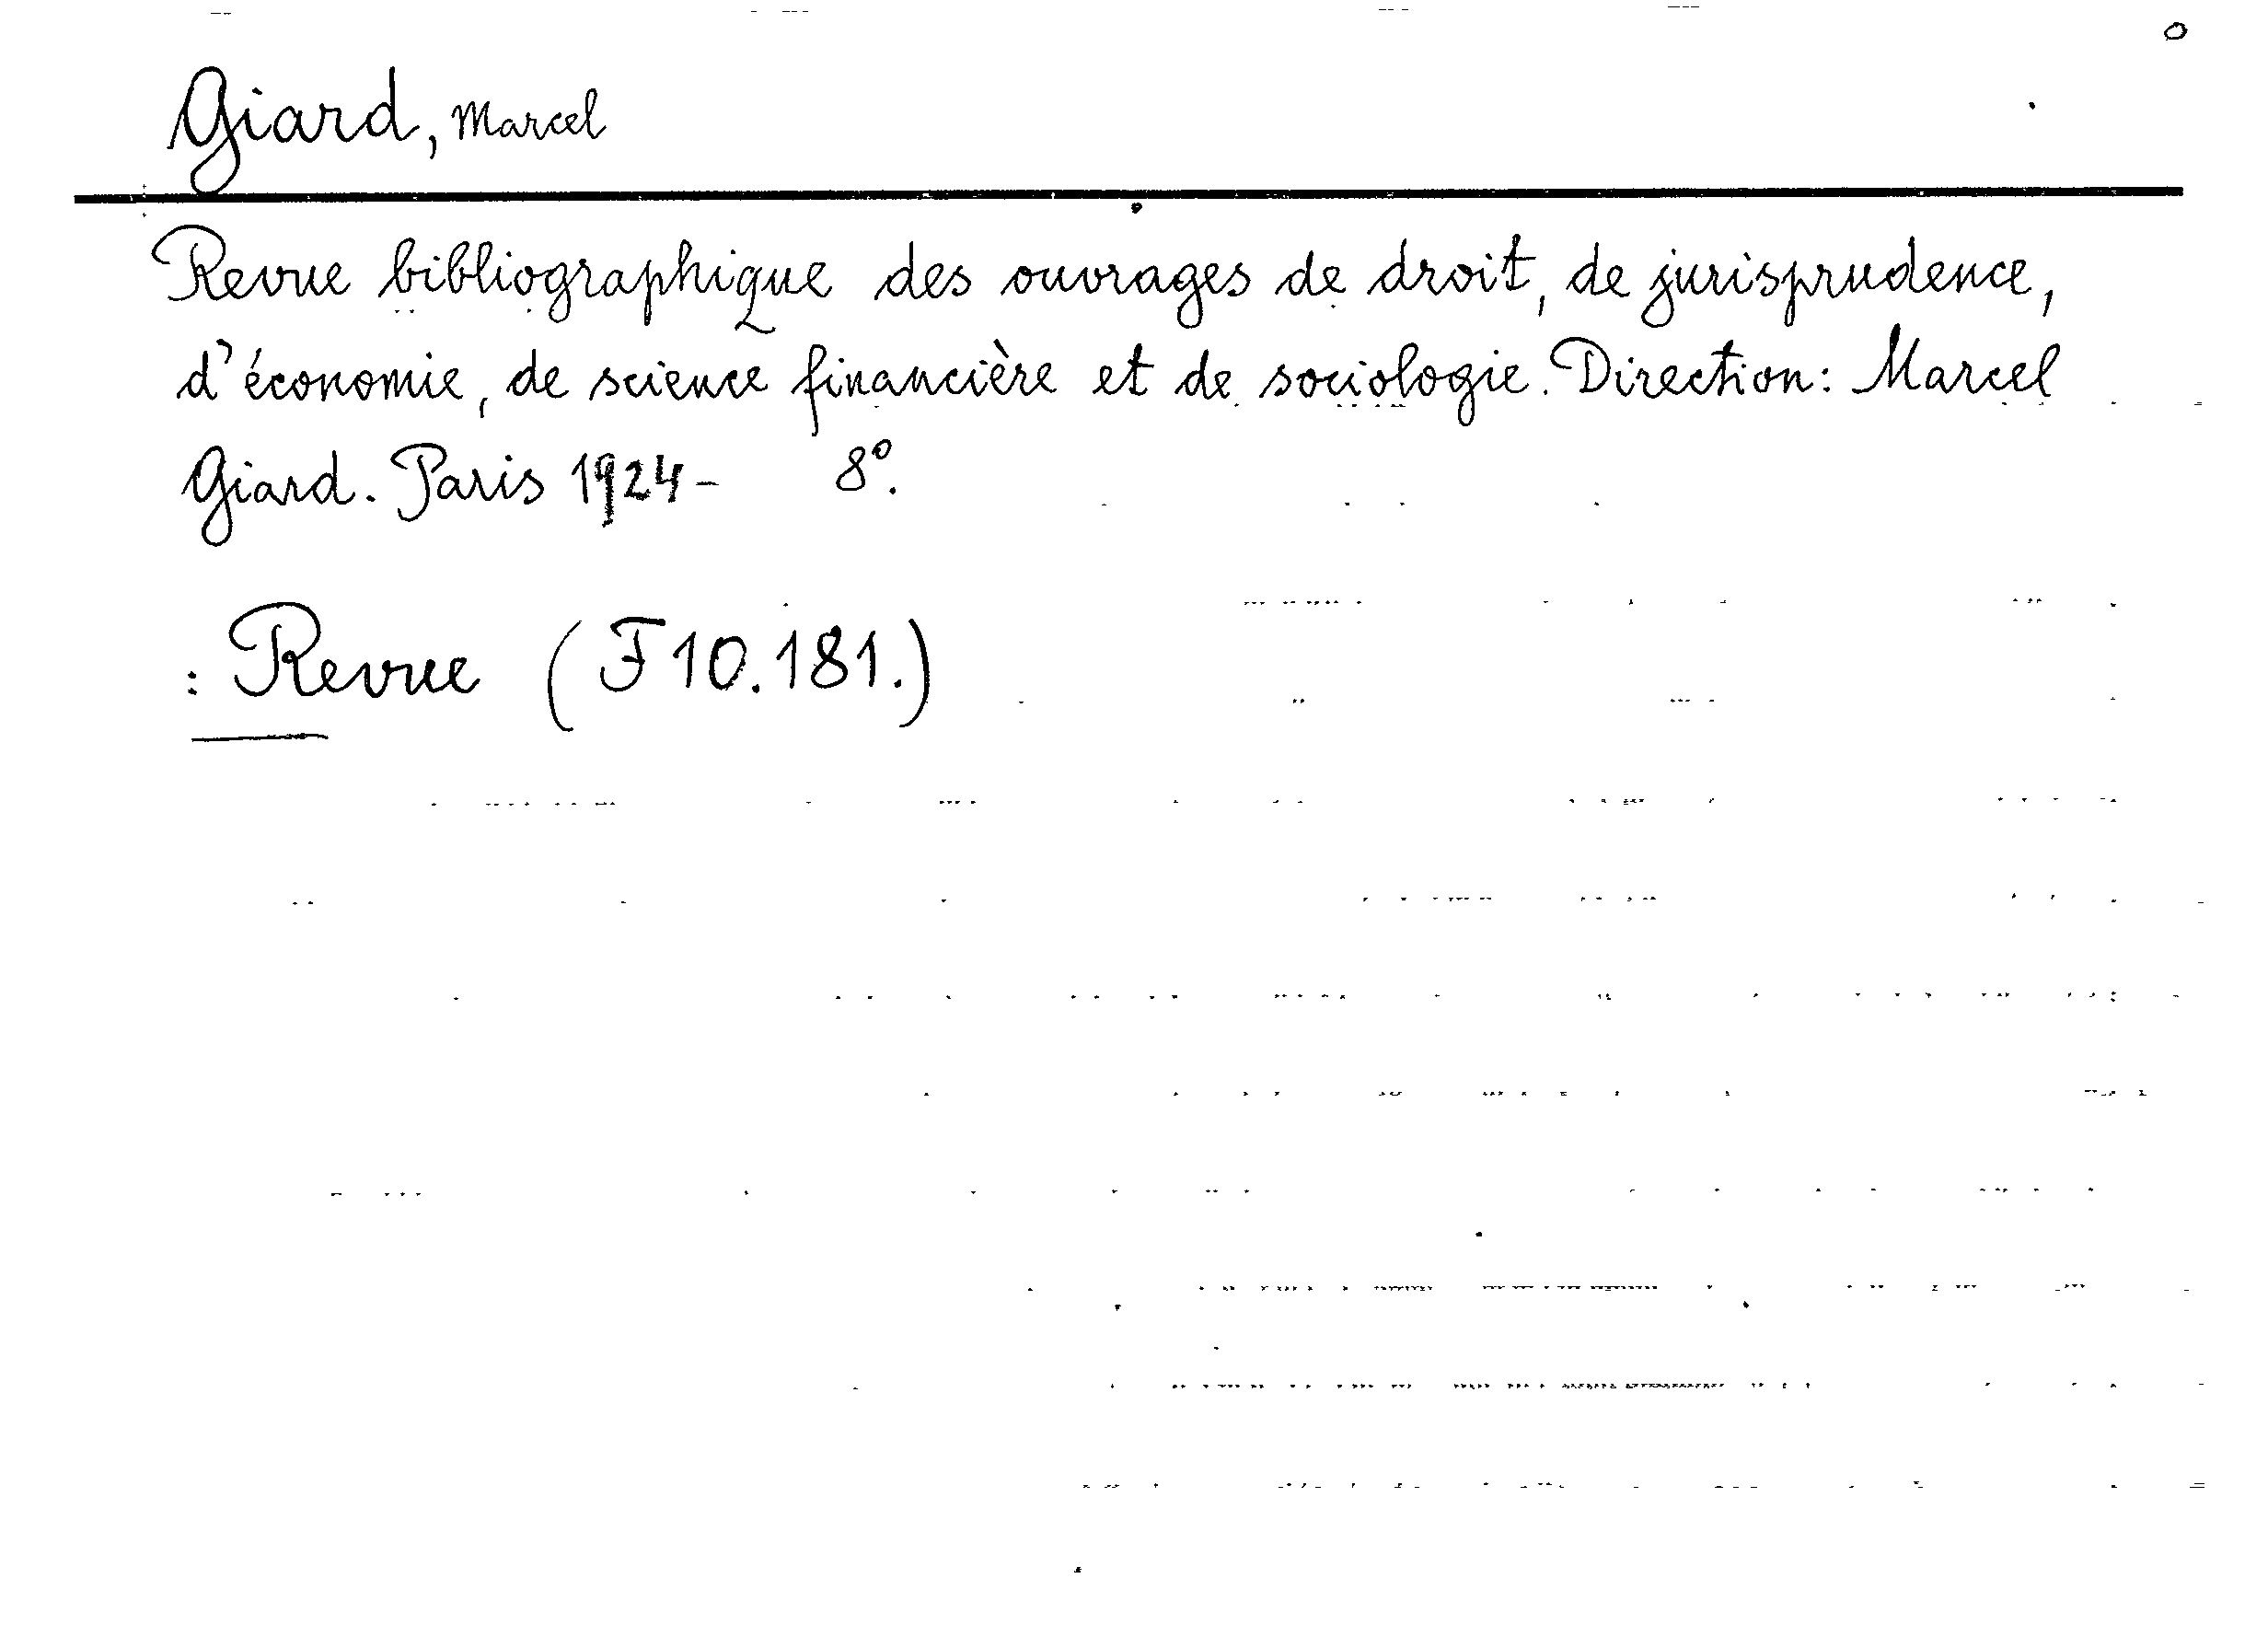 Giard, Marcel
Revue bibliographique des ouvrages de droit, de jurisprudence,
d'économie, de science financière et de sociologie. Direction: Marcel
Giard. Paris 1924- 8°.
: Revue (F10.181.)